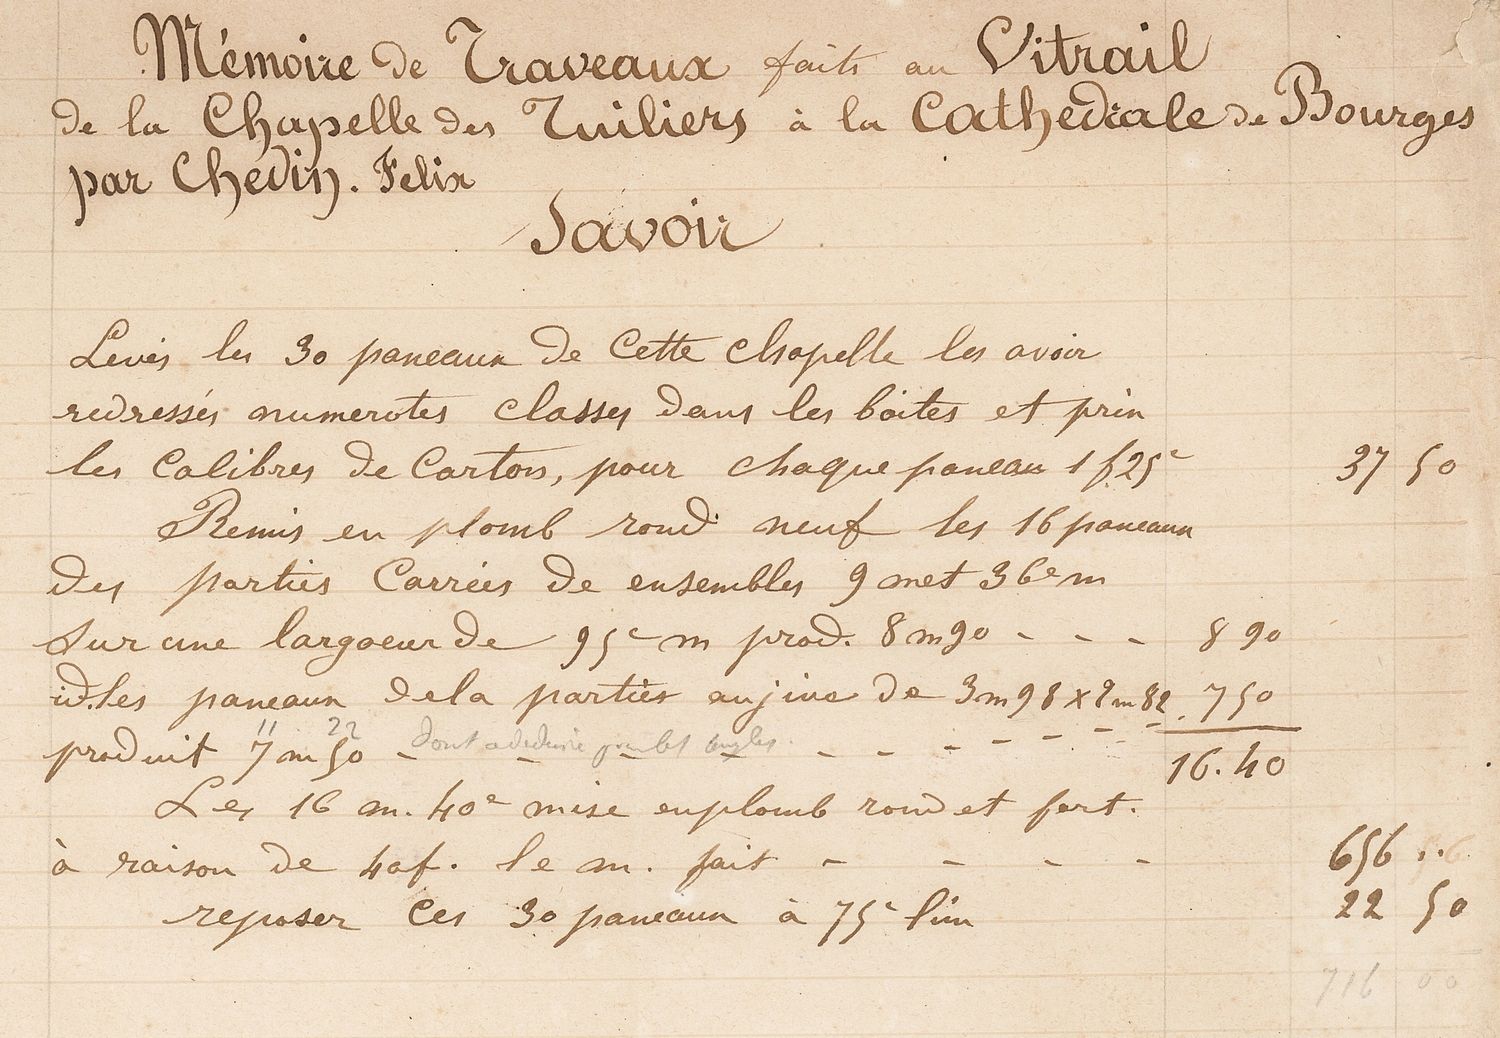 Mémoire de Traveaux faits au Vitrail
de la Chapelle des Tuiliers à la Cathedrale de Bourges
par Chedin. Felix
Savoir
Levés les 30 paneaux de Cette Chapelle les avoir
redressés numerotes classes dans les boites et pris
les Calibres de Carton, pour chaque paneau 1f,25c 37 50
Remis en plomb rond neuf les 16 paneaux
des parties Carrées de ensembles 9 met 36c m
sur une largoeur de 95c m prod. 8m90 - - - 8 90
id. les paneaux de la parties augive de 3m98 x 2m82 . 750
11 22
produit 7m50 - dont a deduire pour les angles - - - - - - - 16.40
Les 16 m. 40c mise en plomb rond et fort.
à raison de 40f. le m. fait - - - - 656 ..
reposer Ces 30 paneaux à 75c l'un 22 50
716 00